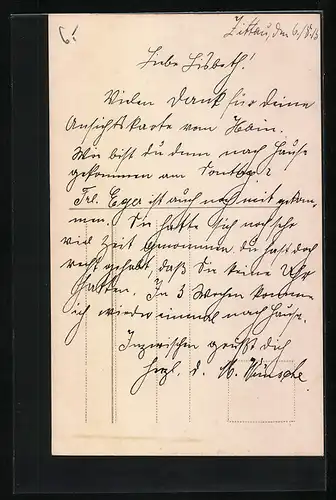 6!
Zittau, den 6./8. 13
Liebe Lisbeth!
Vielen Dank für deine
Ansichtskarte vom Hain.
Wie bist du denn nach Hause
gekommen am Sonntag?
Frl. Ega ist auch noch mit gekom-
men. Sie hatte sich noch sehr
viel Zeit genommen, du hast doch
recht gehabt, daß Sie keine Uhr
hatten. In 3 Wochen komme
ich wieder einmal nach Hause.
Inzwischen grüßt dich
herzl. d. M. Wünsche